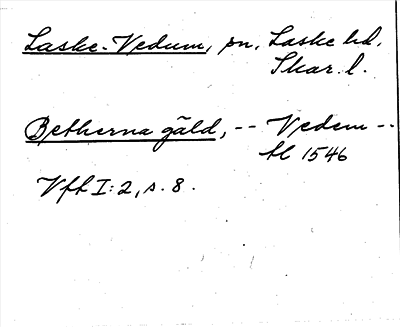 Laske-Vedum, sn, Laske hd.
Skar. l.
Betherna gäld, -- Vedem --
hl 1546
Vfh I:2, s. 8.